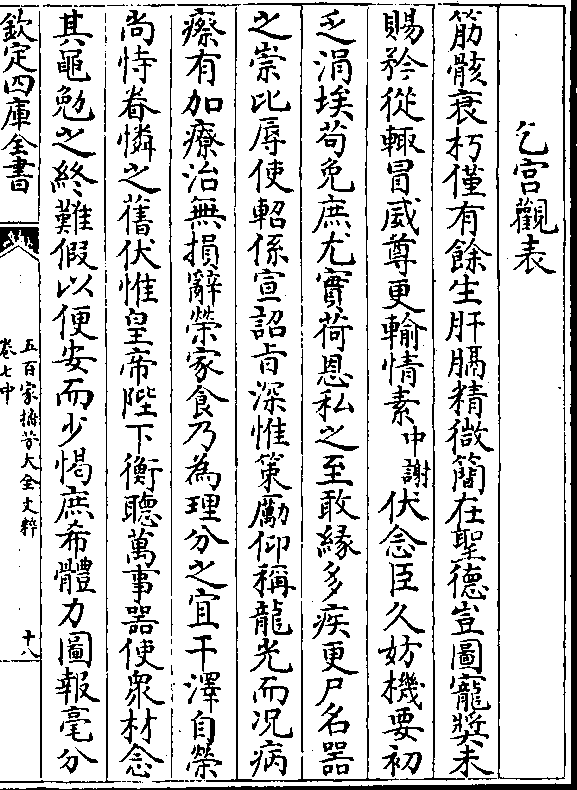 乞宮觀表
筋骸衰朽僅有餘生肝膈精微簡在聖德豈圖寵奬未
賜矜從輙冒威尊更輸情素中謝伏念臣久妨機要初
乏涓埃苟免庶尤實荷恩私之至敢緣多疾更尸名器
之崇比辱使軺係宣詔旨深惟策勵仰稱龍光而况病
瘵有加療治無損辭榮家食乃為理分之宜干澤自榮
尚恃眷憐之舊伏惟皇帝陛下衡聽萬事器使衆材念
其黽勉之終難假以便安而少愒庶希體力圖報毫分
欽定四庫全書
五百家播芳大全文粹
卷七中
十八